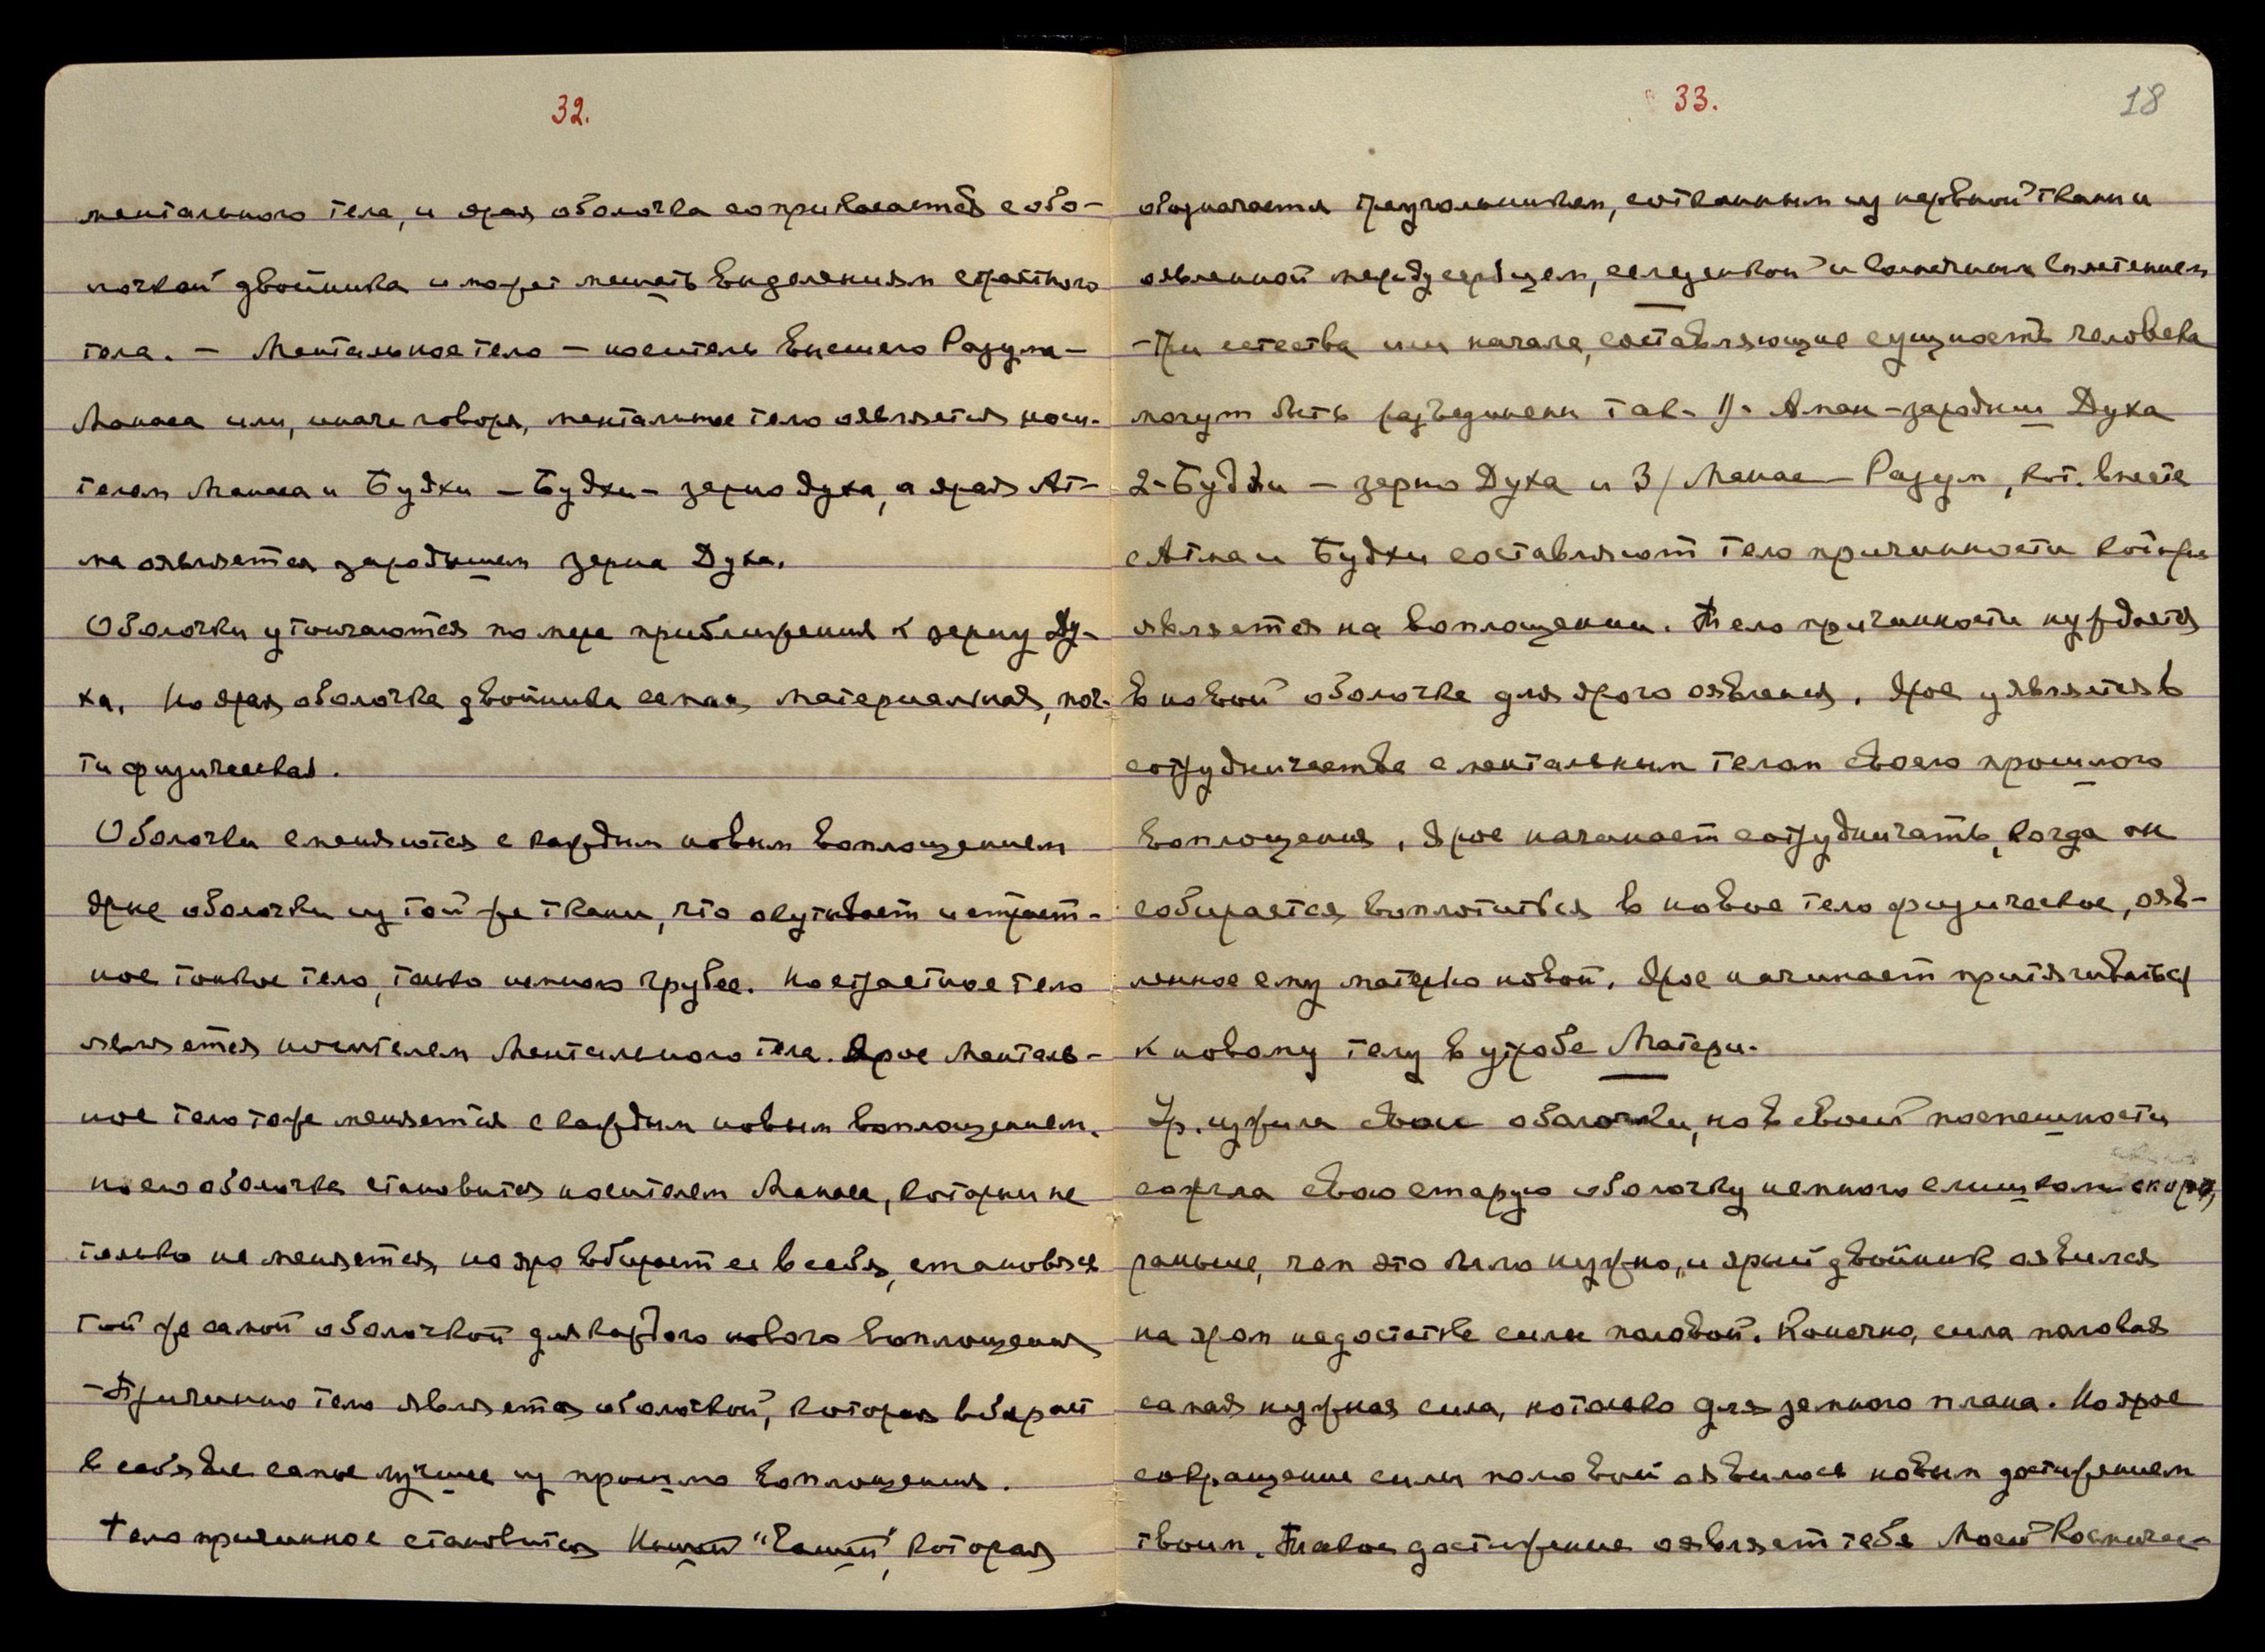 32.
ментального тела, и ярая оболочка соприкасается с обо-
лочкой двойника и может мешать выделениям страстного
тела. – Ментальное тело – носитель Высшего Разума –
Манаса или, иначе говоря, ментальное тело оявляется носи-
телем Манаса и Буддхи – Буддхи – зерно духа, а ярая Ат-
ма оявляется зародышем зерна Духа.
Оболочки утончаются по мере приближения к зерну Ду-
ха. Но ярая оболочка двойника самая материальная, поч-
ти физическая.
Оболочки сменяются с каждым новым воплощением
ярые оболочки из той же ткани, что окутывает и страст-
ное тонкое тело, только немного грубее. Но страстное тело
является носителем Ментального тела. Ярое Менталь-
ное тело тоже меняется с каждым новым воплощением.
но его оболочка становится носителем Манаса, который не
только не меняется, но яро вбирает ее в себя, становясь
той же самой оболочкой для каждого нового воплощения
– Причинно тело является оболочкой, которая вбирает
в себя все самое лучшее из прошлого воплощения.
Тело причинное становится Нашей "Чашей", которая
33.
18
обозначается треугольником, сотканным из нервной ткани и
оявленной между сердцем, селезенкой и солнечным сплетением
– Три естества или начала, составляющие сущность человека
могут быть разъединены так – 1/ – Атма – зародыш Духа
2 – Буддхи – зерно Духа и 3/ Манас – Разум, кот. вместе
с Атма и Буддхи составляют тело причинности которы
является на воплощении. Тело причинности нуждается
в новой оболочке для ярого оявления. Ярое уявляется в
сотрудничестве с ментальным телом своего прошлого
воплощения. Ярое начинает сотрудничать, когда он
собирается воплотиться в новое тело физическое, ояв-
ленное ему матерью новой. Ярое начинает притягиваться
к новому телу в утробе Матери.
Ур. изжила свои оболочки, но в своей поспешности
сожгла свою старую оболочку немного слишком скоро,
раньше, чем это было нужно, и ярый двойник оявился
на яром недостатке силы половой. Конечно, сила половая
самая нужная сила, но только для земного плана. Но ярое
сокращение силы половой оявилось новым достижением
твоим. Такое достижение оявляет тебе Моей Космичес-